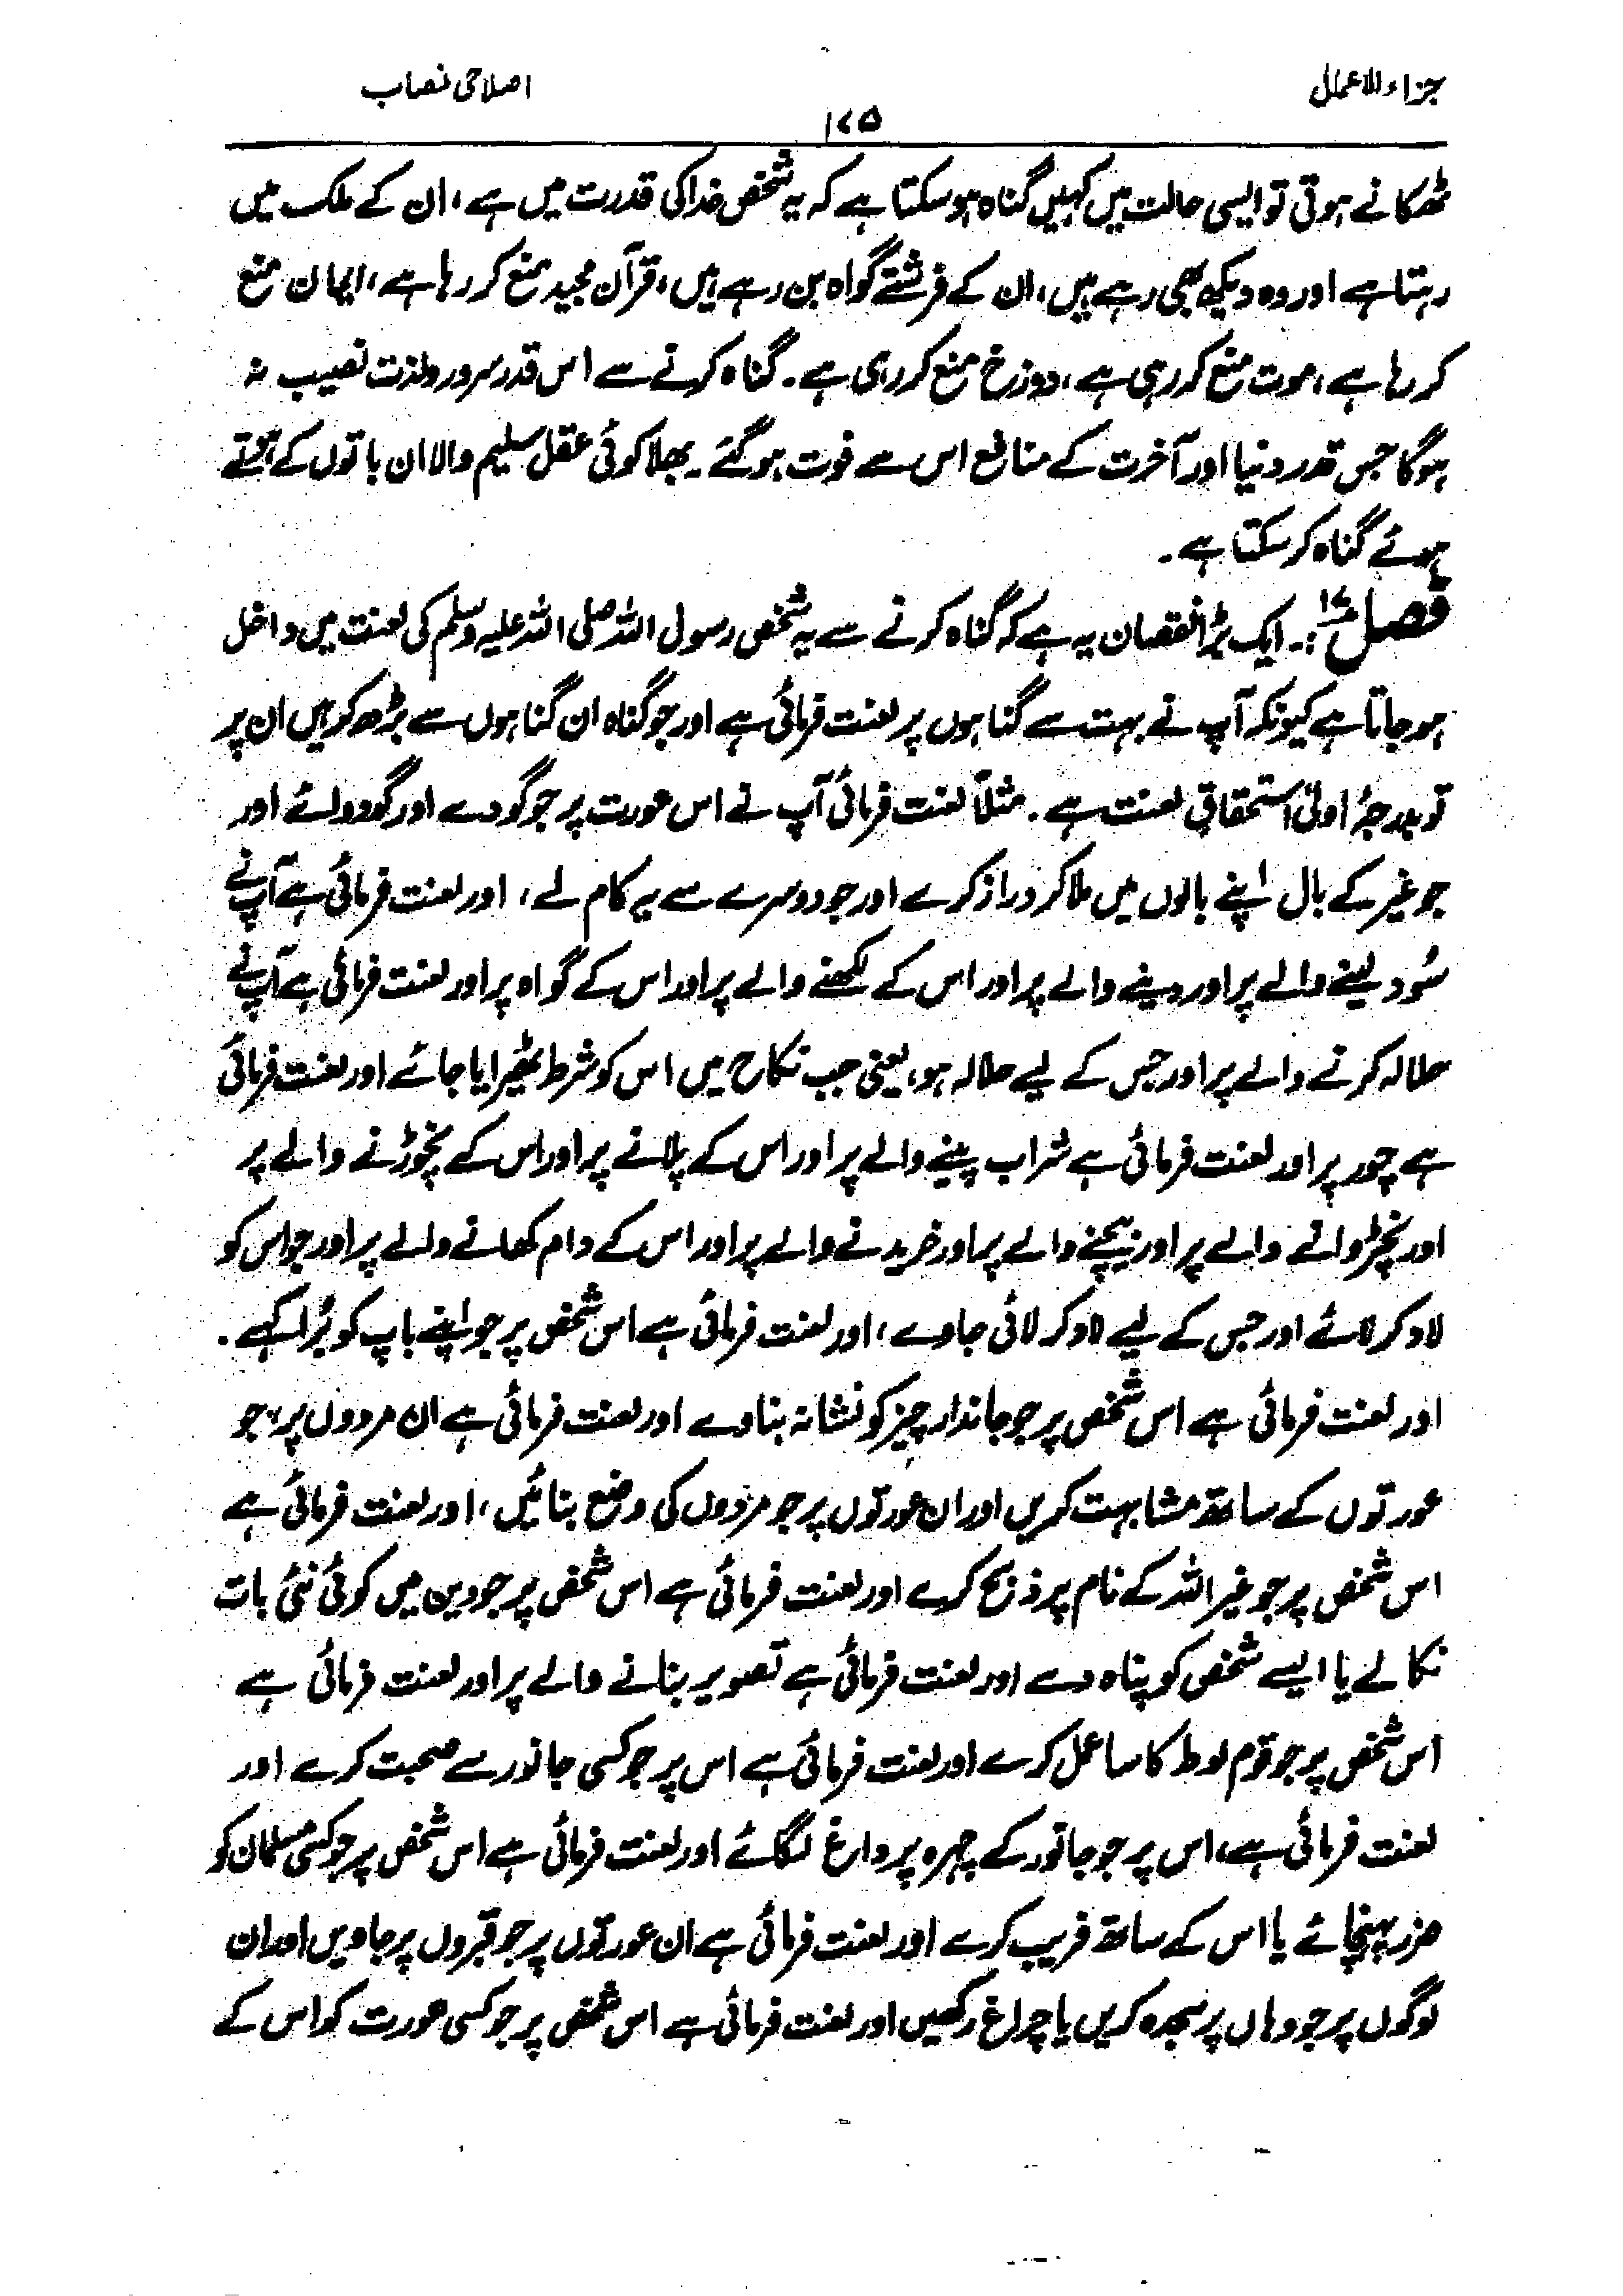 جزاء الاعمال
اصلاحی نصاب
۱۷۵
ٹھکانے ہوتی تو ایسی حالت میں کہیں گناہ ہو سکتا ہے کہ یہ شخص خدا کی قدرت میں ہے، ان کے ملک میں
رہتا ہے اور وہ دیکھ بھی رہے ہیں، ان کے فرشتے گواہ بن رہے ہیں، قرآن مجید منع کر رہا ہے، ایمان منع
کر رہا ہے، موت منع کر رہی ہے، دوزخ منع کر رہی ہے۔ گناہ کرنے سے اس قدر سرور ولذت نصیب نہ
ہوگا جس قدر دنیا اور آخرت کے منافع اس سے فوت ہو گئے۔ بھلا کوئی عقل سلیم والا ان باتوں کے ہوتے
ہوئے گناہ کر سکتا ہے۔
فصل ۱۷:۔ ایک بڑا نقصان یہ ہے کہ گناہ کرنے سے یہ شخص رسول اللہ صلی اللہ علیہ وسلم کی لعنت میں داخل
ہو جاتا ہے کیونکہ آپ نے بہت سے گناہوں پر لعنت فرمائی ہے اور جو گناہ ان گناہوں سے بڑھ کر ہیں ان پر
تو بدرجۂ اولیٰ استحقاق لعنت ہے۔ مثلاً لعنت فرمائی آپ نے اس عورت پر جو گودے اور گودوائے اور
جو غیر کے بال اپنے بالوں میں ملا کر دراز کرے اور جو دوسرے سے یہ کام لے، اور لعنت فرمائی ہے آپ نے
سُود لینے والے پر اور دینے والے پر اور اس کے لکھنے والے پر اور اس کے گواہ پر اور لعنت فرمائی ہے آپ نے
حلالہ کرنے والے پر اور جس کے لیے حلالہ ہو، یعنی جب نکاح میں اس کو شرط ٹھیرایا جائے اور لعنت فرمائی
ہے چور پر اور لعنت فرمائی ہے شراب پینے والے پر اور اس کے پلانے پر اور اس کے نچوڑنے والے پر
اور نچڑوانے والے پر اور بیچنے والے پر اور خریدنے والے پر اور اس کے دام کھانے والے پر اور جو اس کو
لاد کر لائے اور جس کے لیے لاد کر لائی جاوے، اور لعنت فرمائی ہے اس شخص پر جو اپنے باپ کو بُرا کہے۔
اور لعنت فرمائی ہے اس شخص پر جو جاندار چیز کو نشانہ بناوے اور لعنت فرمائی ہے ان مردوں پر، جو
عورتوں کے ساتھ مشابہت کریں اور ان عورتوں پر جو مردوں کی وضع بنائیں، اور لعنت فرمائی ہے
اس شخص پر جو غیر اللہ کے نام پر ذبح کرے اور لعنت فرمائی ہے اس شخص پر جو دین میں کوئی نئی بات
نکالے یا ایسے شخص کو پناہ دے اور لعنت فرمائی ہے تصویر بنانے والے پر اور لعنت فرمائی ہے
اس شخص پر جو قوم لوط کا سا عمل کرے اور لعنت فرمائی ہے اس پر جو کسی جانور سے صحبت کرے اور
لعنت فرمائی ہے، اس پر جو جانور کے چہرہ پر داغ لگائے اور لعنت فرمائی ہے اس شخص پر جو کسی مسلمان کو
ضرر پہنچائے یا اس کے ساتھ فریب کرے اور لعنت فرمائی ہے ان عورتوں پر جو قبروں پر جاویں اور ان
لوگوں پر جو وہاں پر سجدہ کریں یا چراغ رکھیں اور لعنت فرمائی ہے اس شخص پر جو کسی عورت کو اس کے